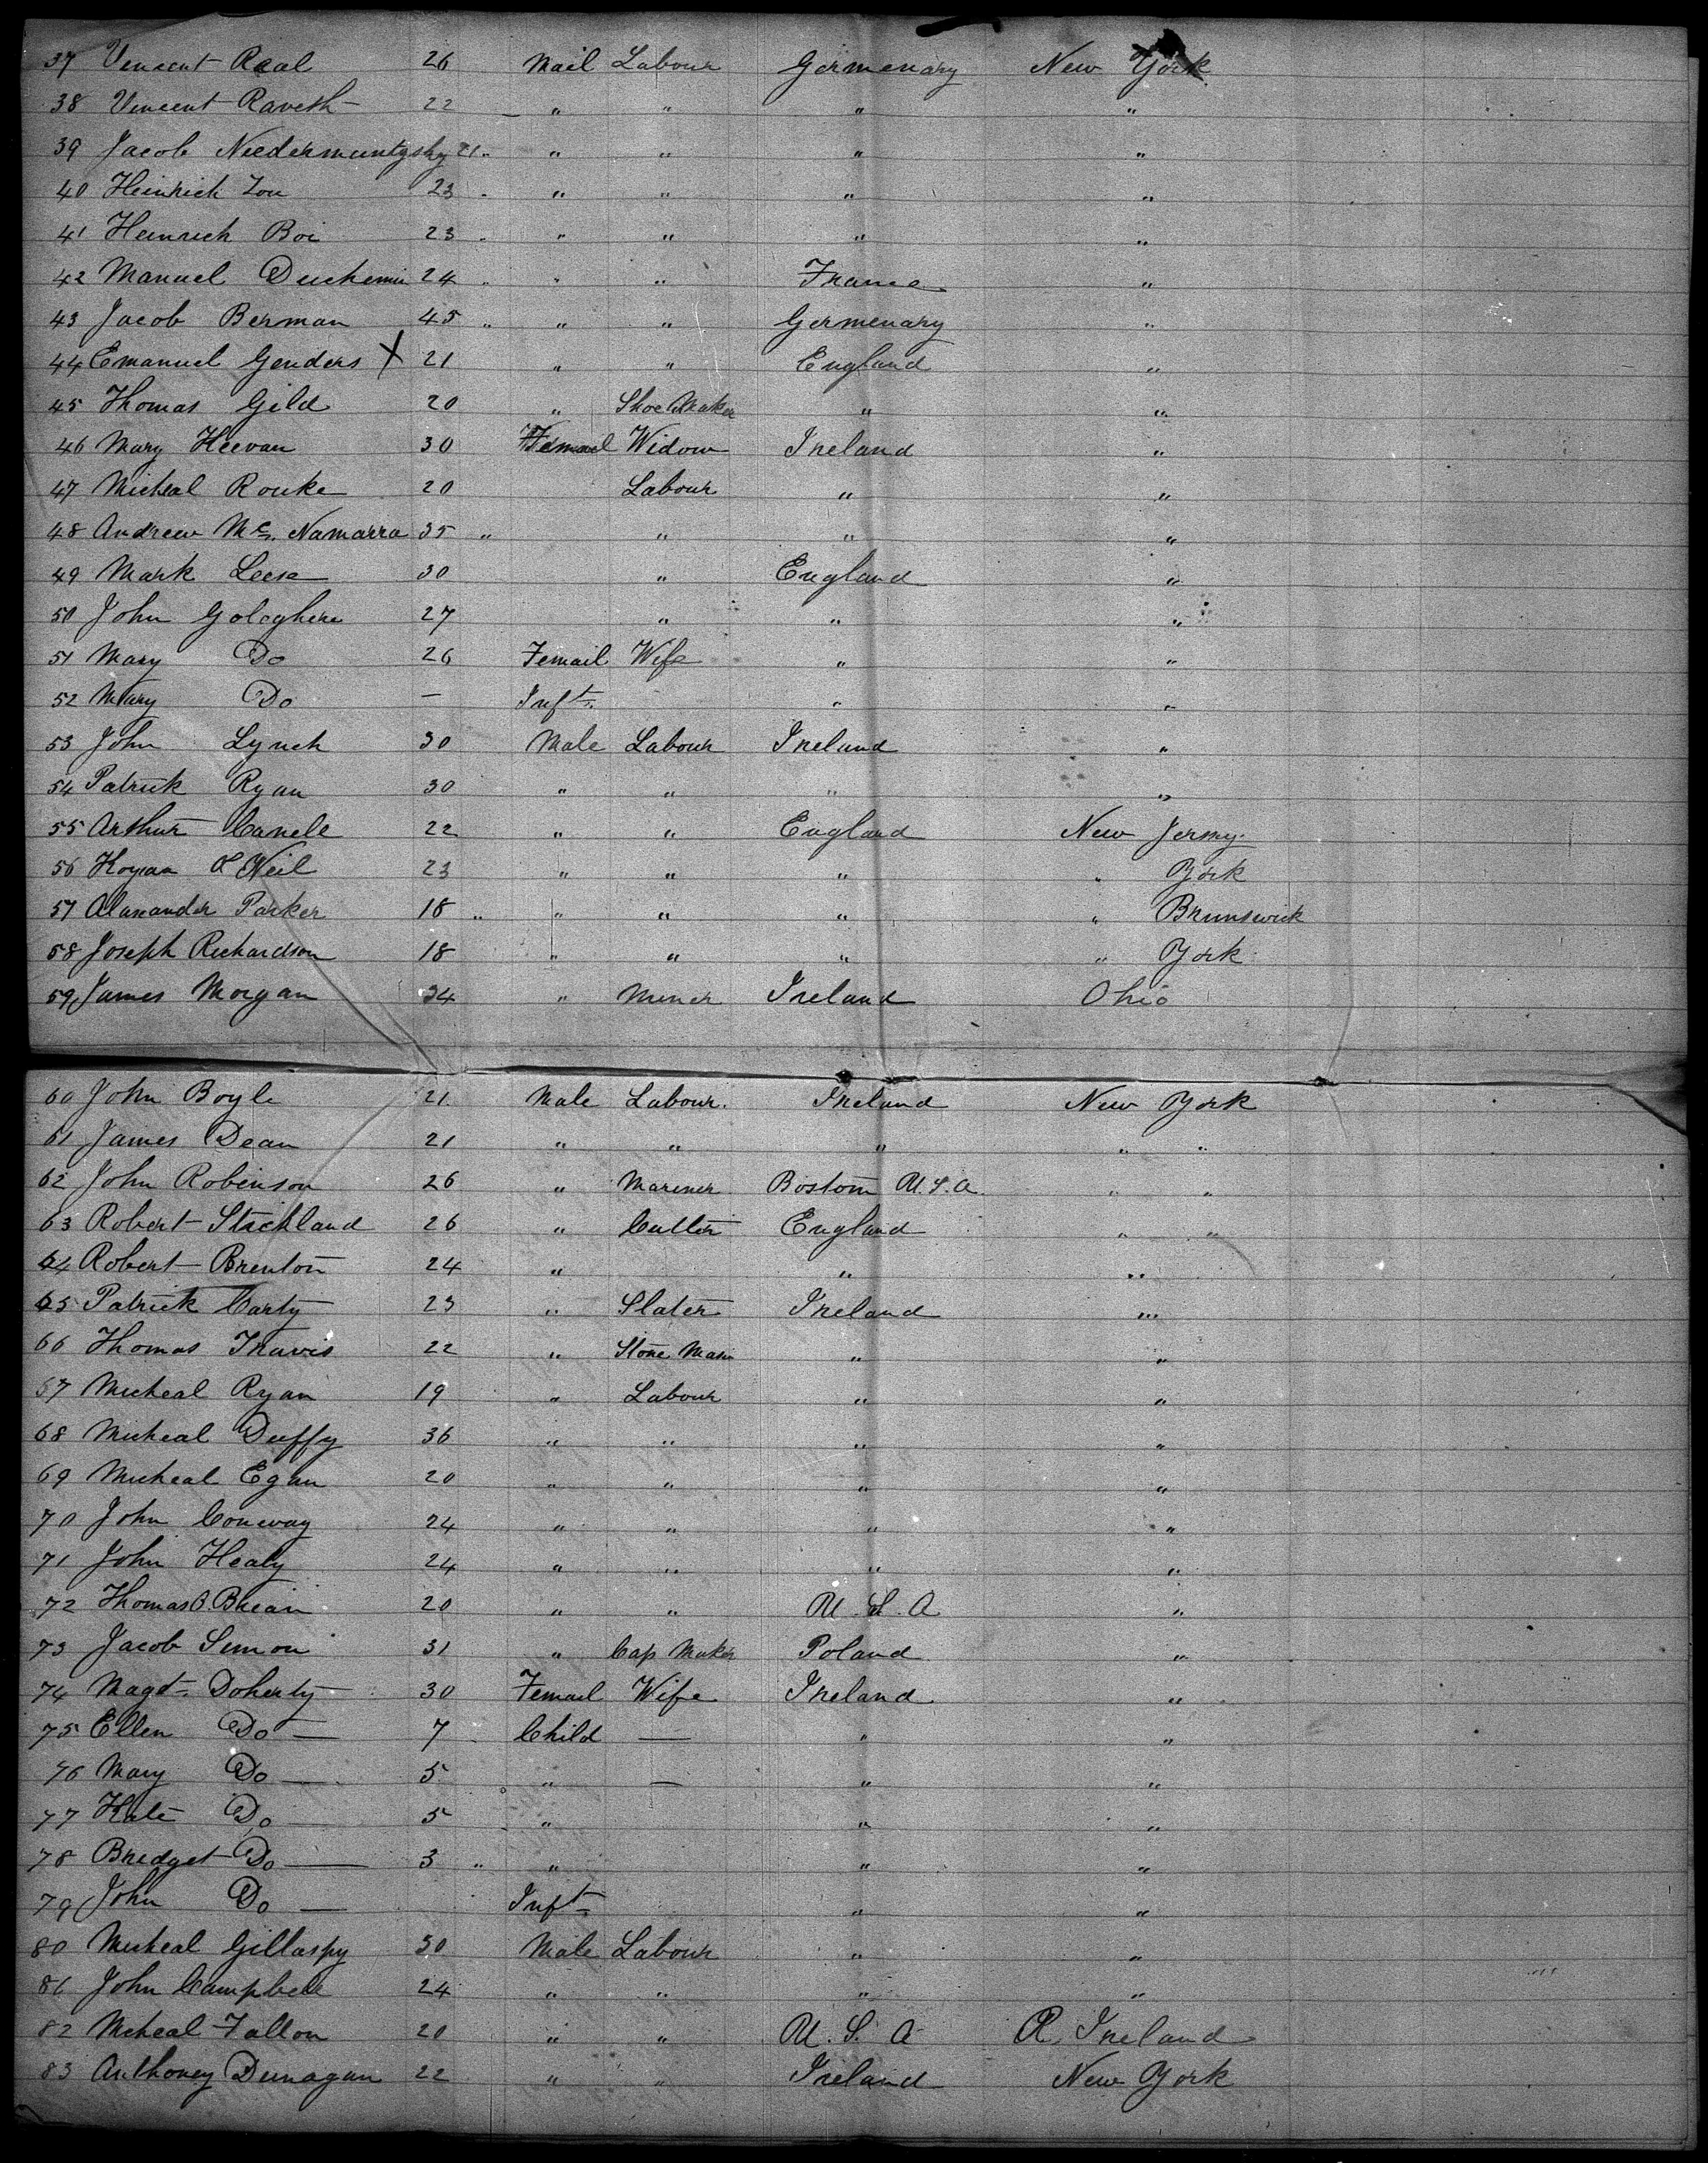 37 Vincent Raal 26 Mail Labour Germenary New York
38 Vincent Raveth 22 " " " "
39 Jacob Niedermuntzsky 21 " " " " "
40 Heinrich Zou 23 " " " "
41 Heinrich Boi 23 " " " "
42 Manuel Duchemin 24 " " " France "
43 Jacob Berman 45 " " " Germenary "
44 Emanuel Genders X 21 " " England "
45 Thomas Gild 20 " Shoe Maker " "
46 Mary Heevan 30 Femael Widow Ireland "
47 Micheal Rouke 20 Labour " "
48 Andrew Mc. Namarra 35 " " " "
49 Mark Leese 30 " England "
50 John Gologhere 27 " " "
51 Mary Do 26 Femail Wife " "
52 Mary Do — Inft. " "
53 John Lynch 30 Male Labour Ireland "
54 Patrick Ryan 30 " " " "
55 Arthur Canele 22 " " England New Jersey
56 O Neil 23 " " " " York
57 Alaxander Parker 18 " " " " " Brunswick
58 Joseph Richardson 18 " " " " York
59 James Morgan 34 " Miner Ireland Ohio
60 John Boyle 21 Male Labour. Ireland New York
61 James Dean 21 " " " " "
62 John Robinson 26 " Mariner Bostom U.S.A. " "
63 Robert Strickland 26 " Cutter England " "
64 Robert Brenton 24 " " "
65 Patrick Carty 23 " Slater Ireland "
66 Thomas Travis 22 " Stone Masn " "
67 Micheal Ryan 19 " Labour " "
68 Micheal Duffy 36 " " " "
69 Micheal Egan 20 " " " "
70 John Conway 24 " " " "
71 John Healy 24 " " " "
72 Thomas O. Brian 20 " " U.S.A "
73 Jacob Simon 31 " Cap Maker Poland "
74 Magt. Doherty 30 Femael Wife Ireland "
75 Ellen Do — 7 Child — " "
76 Mary Do — 5 " — " "
77 Kate Do — 5 " " "
78 Bredget Do — 3 " " " "
79 John Do — Inft " "
80 Micheal Gillaspy 30 Male Labour " "
81 John Campbell 24 " " " "
82 Micheal Fallon 20 " " U.S. A R. Ireland
83 Anthoney Dunagan 22 " " Ireland New York